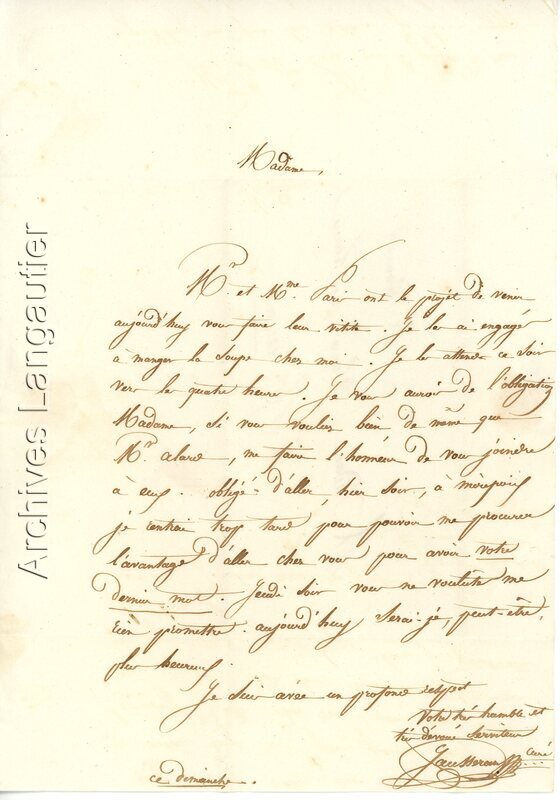 Madame,
Mr. et Mme Paris ont le projet de venir
aujourd'huy vous faire leur visite. Je les ai engagés
à manger la soupe chez moi. Je les attends ce soir
vers les quatre heures. Je vous aurois de l'obligation
Madame, si vous vouliez bien de même que
Mr. alard, me faire l'honneur de vous joindre
à eux. obligé d'aller, hier soir, à
je rentrai trop tard pour pouvoir me procurer
l'avantage d'aller chez vous pour avoir votre
dernier mot. Jeudi soir vous ne voulûtes me
rien promettre. aujourd'huy serai-je, peut-être,
plus heureux.
Je suis avec un profond respect
Votre très humble et
très dévoué serviteur
curé
ce dimanche.
Archives Langautier